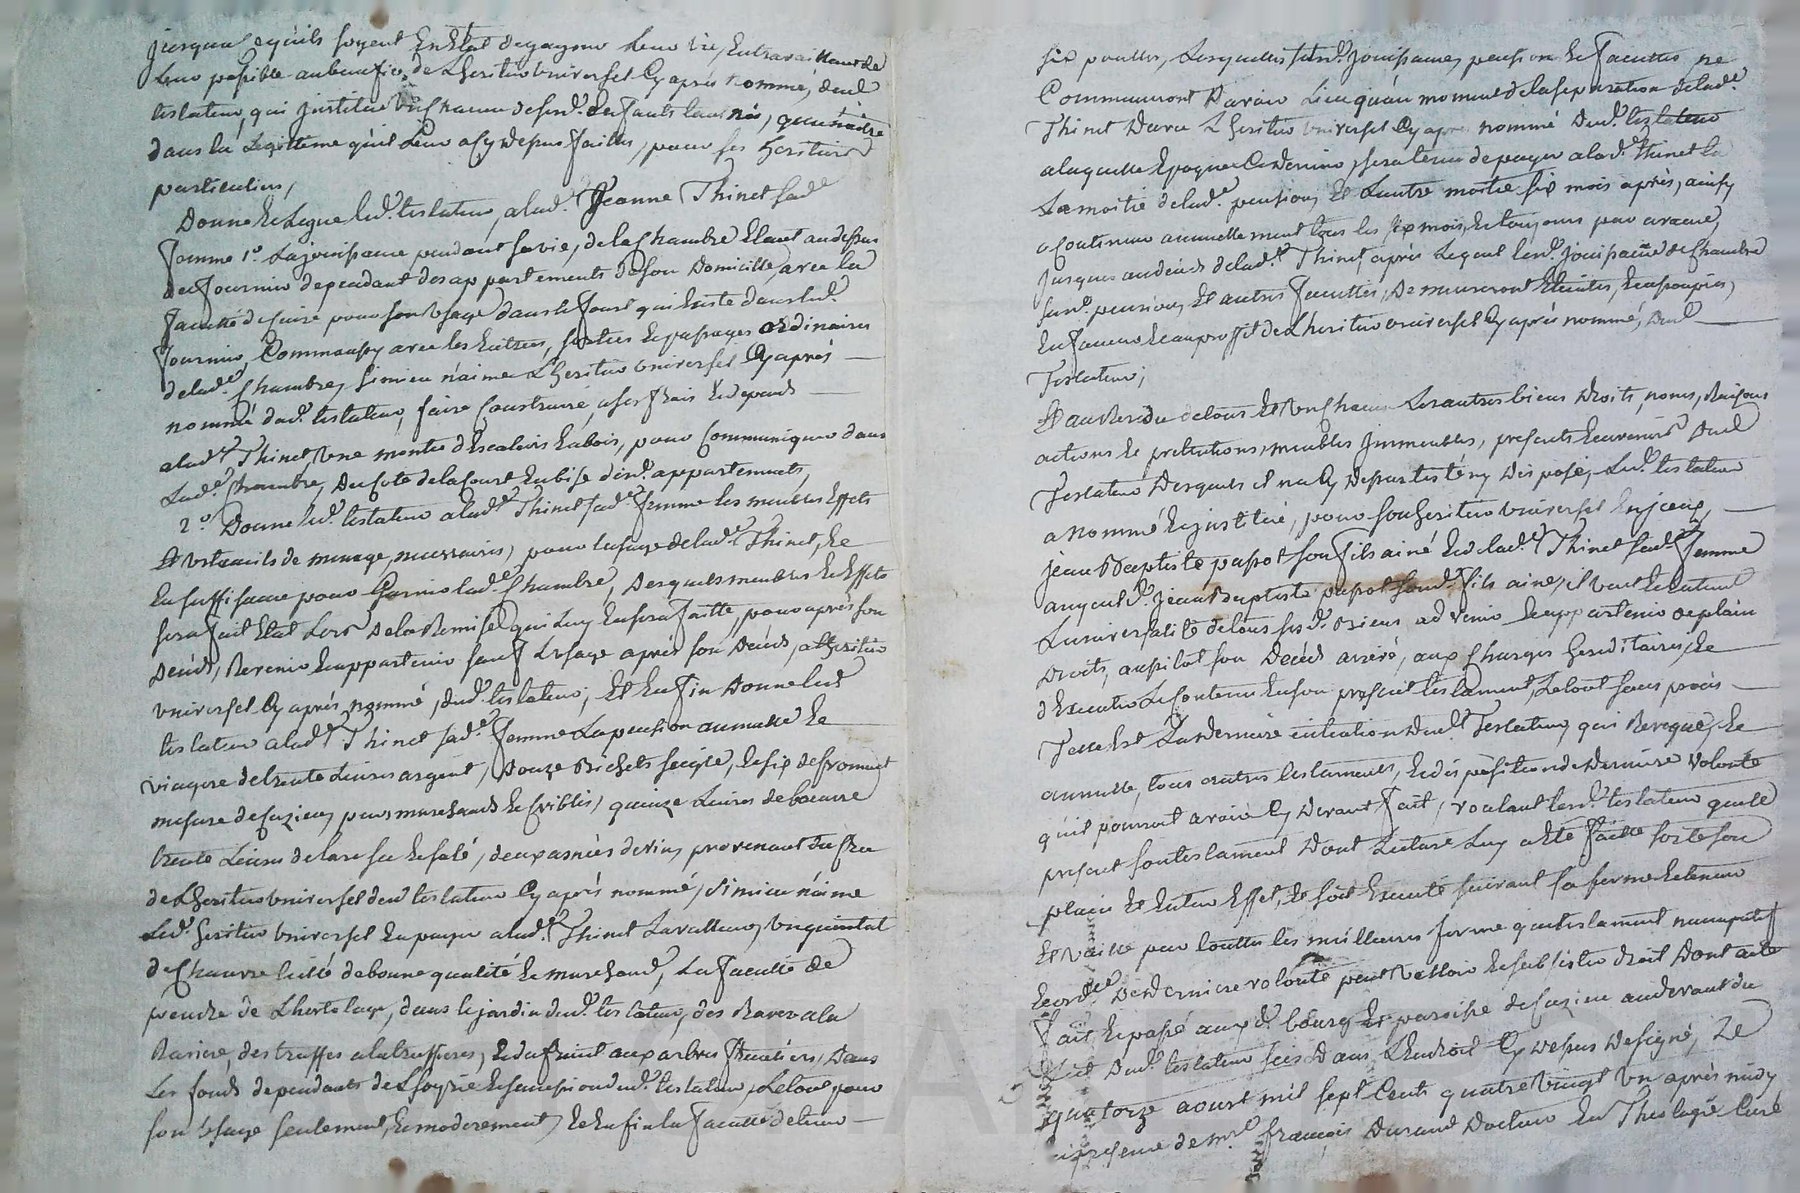 jusques a ce quils soyent En Etat de gagner Leur vie, En travaillant de
Leur possible au benefice, de L'heritier universel Cy après nommé, dud.
testateur, qui institue un chacun desesd. Enfants tant nés, qu'a naitre
dans la Legitime quil Leur a Cy dessus faitte, pour ses heritiers
particuliers,
Donne Et Legue led. testateur, a lad. Jeanne Thinet sad.
femme 1.° La jouissance pendant sa vie, de la Chambre Etant au dessus
du fournier dependant des appartements de son Domicille, avec la
faculté de Cuire pour son usage dans le four qui Existe dans led.
fournier, Commun avec les Entrées, sorties Et passages ordinaires
de lad. Chambre, si mieu n'aime L'heritier universel Cy après
nommé dud. testateur, faire Construire, a ses frais Et depends
a lad. Thinet, une montée d'Escaliers En bois, pour Communiquer dans
Lad. Chambre, Du Coté de la Cour En bise desd. appartements,
2.° Donne led. testateur a lad. Thinet sad. femme les meubles Effets
Et Ustencils de menage, necessaires, pour l'usage de lad. Thinet, Et
En suffisance pour Garnir lad. Chambre, Desquels meubles Et Effets
sera fait Etat Lors De la Remise qui Luy En sera faitte, pour après son
Decéds, Revenir Et appartenir sauf L'usage après son Decéds, a L'heritier
universel Cy après nommé, dud. testateur, Et Enfin Donne led.
testateur a lad. Thinet sad. femme La pension annuelle Et
viagere de trente Livres argent, Douze Bichets seigle, Et six de froment
mesure de Cuzieu, purs marchands Et Criblés, quinze Livres de beurre
trente Livres de lard sec Et salé, deux asnées de vin, provenant du Cru
de L'heritier universel dud. testateur Cy après nommé, si mieu n'aime
Led. heritier universel En payer a lad. Thinet La valleur, un quintal
de Chanvre teillé de bonne qualité Et marchand, La faculté de
prendre de L'hortolage, dans le jardin dud. testateur, des Raves a la
Raviere, des truffes a la truffiere, Et du fruit aux arbres fruitiers, Dans
Les fonds dependants de L'hoyrie Et succession dud. testateur, Le tout pour
son Usage seulement, Et moderement, Et Enfin la faculté de tenir
six poulles, Lesquelles susd. jouissance, pension Et facultés ne
Commenceront D'avoir Lieu qu'au moment de la separation de lad.
Thinet D'avec L'heritier universel Cy après nommé Dud. testateur
a laquelle Epoque Ce dernier, sera tenu de payer a lad. Thinet la
La moitié de lad. pension, Et L'autre moitié six mois après, ainsy
a Continuer annuellement tous les six mois, Et toujours par avance,
jusques au decéds de lad. Thinet, après Lequel lesd. jouissance de Chambre
susd. pension, Et autres facultés, Demeureront Eteintes, Et assoupies,
En faveur Et au proffit de L'heritier universel Cy après nommé, Dud.
Testateur;
Et au Residu de tous Et un Chacun Les autres biens Droits, noms, Raisons
actions Et pretentions, meubles immeubles, presents Et avenirs Dud.
Testateur Desquels il n'a Cy Dessus testé ny disposé, Led. testateur
a Nommé Et institué, pour son heritier universel En iceux,
jean Baptiste papot son fils ainé Et de lad. Thinet sad. femme
auquel d. jean Baptiste papot sond. fils ainé, il veut Et entend
L'universalité de tous sesd. Biens advenir Et appartenir de plain
Droits, aussitot son Decéds arrivé, aux Charges hereditaires, Et
d'Executer Le Contenu En son present testament, Le tout sans procès
Telle Est La derniere intention Dud. Testateur, qui Revoque, Et
annulle, tous autres testaments, Et disposition de Derniere volonté
qu'il pourroit avoir Cy devant fait, voulant led. testateur que le
present son testament Dont Lecture Luy a Eté faitte sorte son
plain Et Entier Effet, Et soit Executé suivant sa forme Et teneur
Et vaille par touttes les meilleures formes que testament nuncupatif
Et ord.re De derniere volonté peut valloir Et subsister de droit Dont acte
fait, Et passé auxd. bourg Et paroisse de Cuzieu au devant du
Lit Dud. testateur sis Dans L'Endroit Cy dessus Designé, Le
quatorze aoust mil sept Cents quatre vingt un après midy
En presence de m.re françois Durand Docteur En Theologie Curé